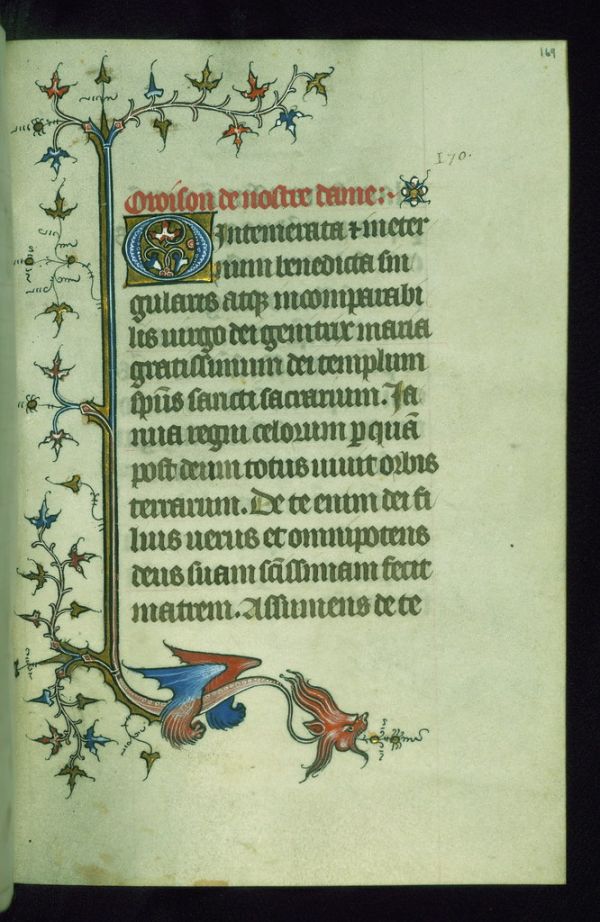 169
170.
Oroison de nostre dame:·
O Intemerata ⁊ in eter
num benedicta sin
gularis atq; incomparabi
lis uirgo dei genitrix maria
gratissimum dei templum
sp̄us sancti sacrarium. Ja
nua regni celorum p quā
post deum totus uiuit orbis
terrarum. De te enim dei fi
lius uerus et omnipotens
deus suam sc̄issimam fecit
matrem. Assumens de te